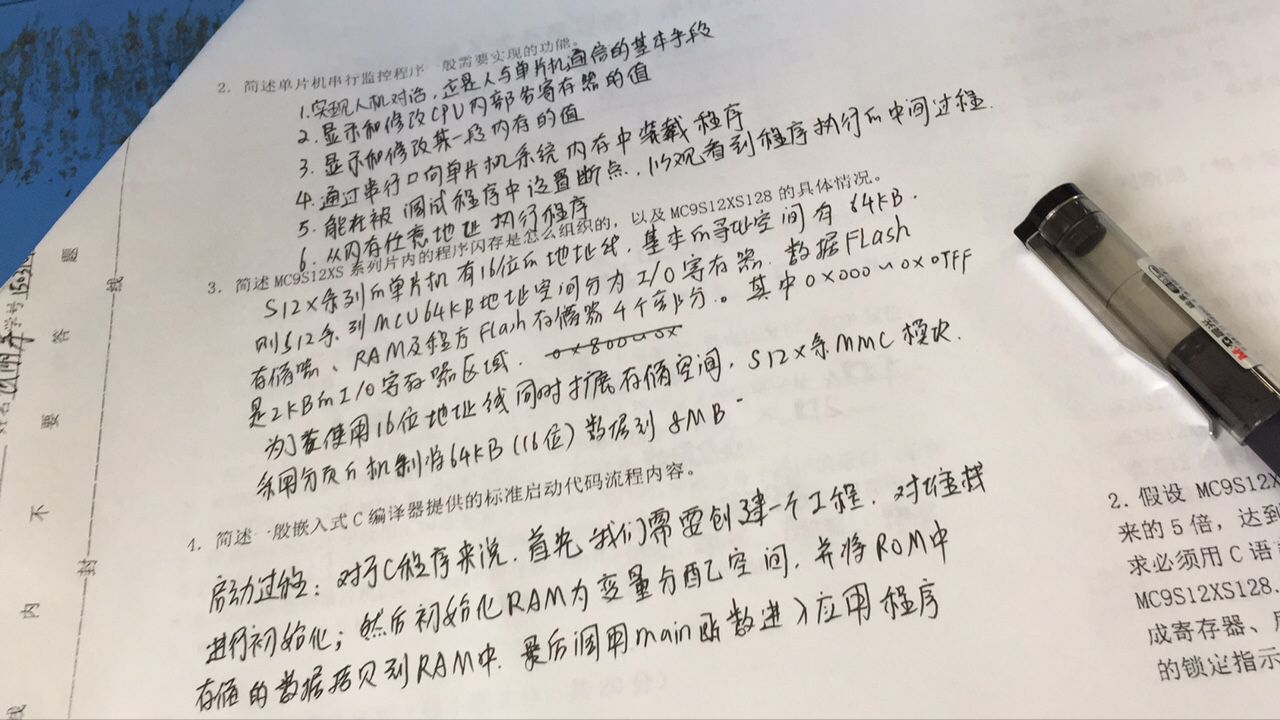 2. 简述单片机串行监控程序一般需要实现的功能。
1.实现人机对话,这是人与单片机通信的基本手段
2.显示和修改CPU内部各寄存器的值
3.显示和修改某一段内存的值
4.通过串行口向单片机系统内存中装载程序
5.能在被调试程序中设置断点,以观看到程序执行的中间过程.
6.从内存任意地址执行程序
3. 简述 MC9S12XS 系列片内的程序闪存是怎么组织的,以及MC9S12XS128 的具体情况。
S12X系列的单片机有16位的地址线,基本的寻址空间有64KB.
则S12系列MCU64KB地址空间分为I/O寄存器、数据FLash
存储器、RAM及程序Flash存储器4个部分。其中0x000~0x07FF
是2KB的I/O寄存器区域.
为了要使用16位地址线同时扩展存储空间,S12X系MMC模块.
采用分页的机制将64KB(16位)数据到8MB
4. 简述一般嵌入式 C 编译器提供的标准启动代码流程内容。
启动过程:对于C程序来说,首先我们需要创建一个工程,对堆栈
进行初始化;然后初始化RAM为变量分配空间,并将ROM中
存储的数据拷贝到RAM中.最后调用main函数进入应用程序
2. 假设 MC9S12X
来的 5 倍,达到
求必须用 C 语
MC9S12XS128.
成寄存器、
的锁定指示
题
答
要
不
内
线
封
线
学号
姓名